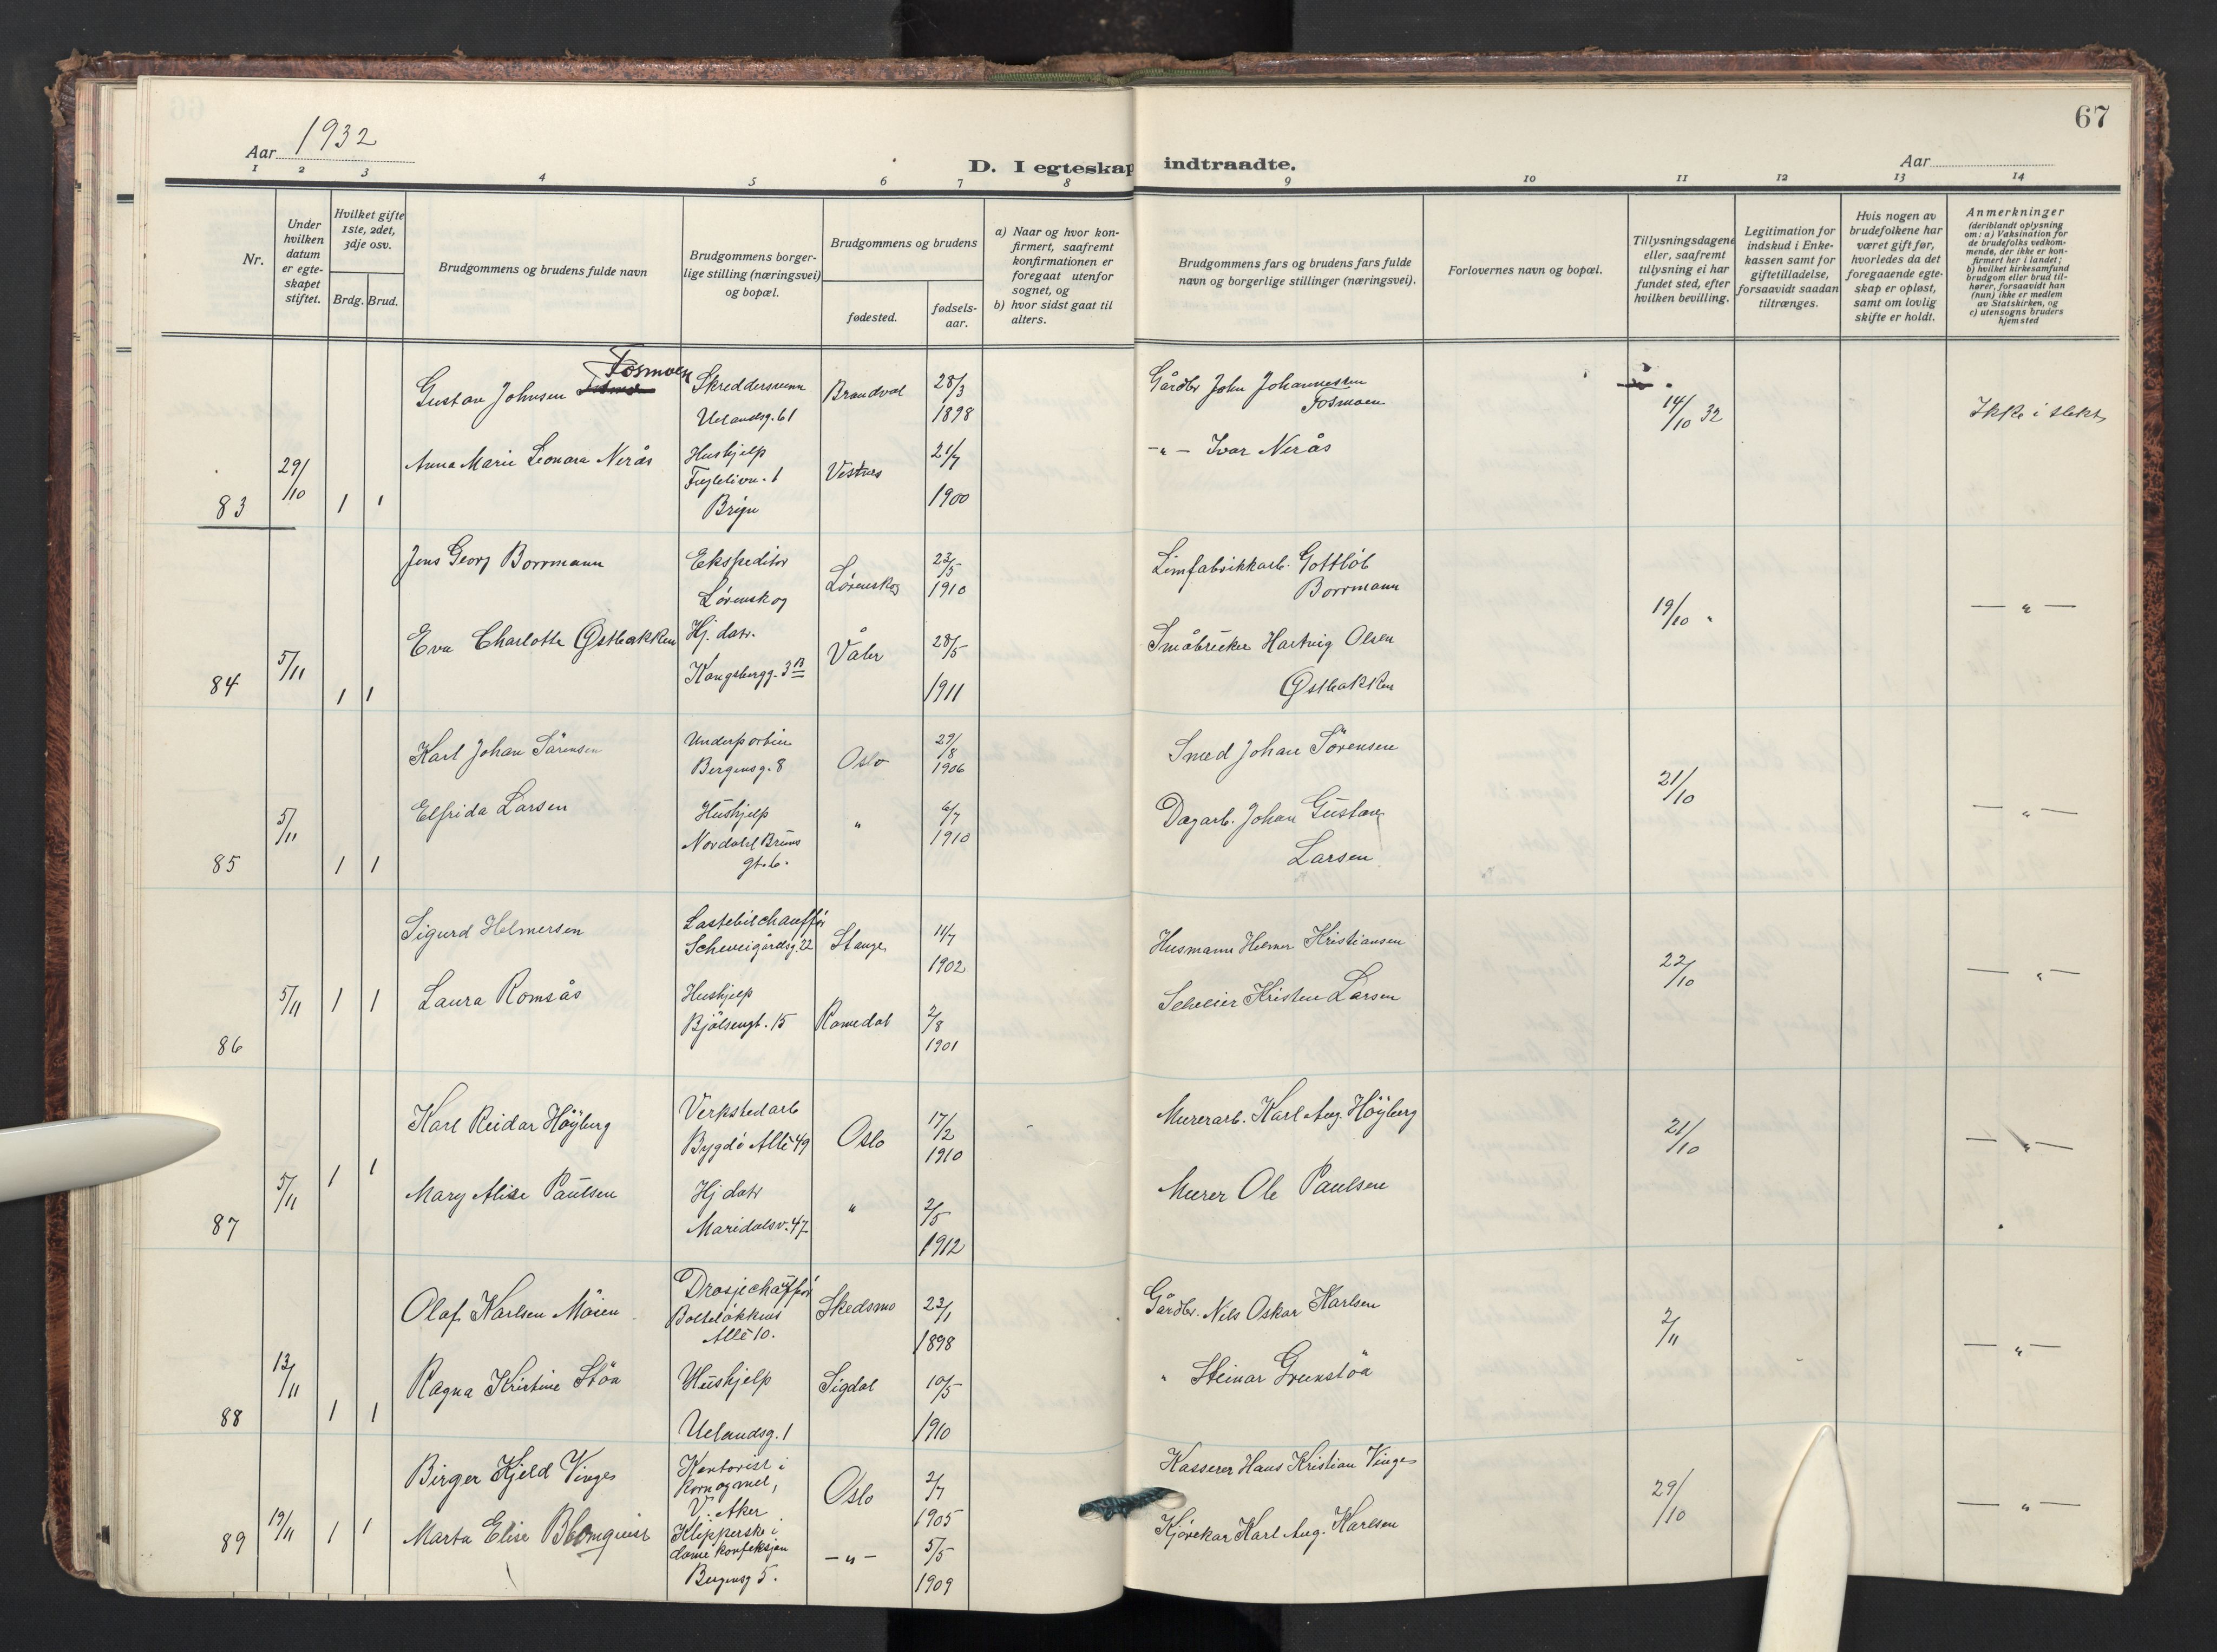 67
Aar 1932
D. I egteskap indtraadte.
Aar
1 2 3 4 5 6 7 8 9 10 11 12 13 14
Nr.
Under
hvilken
datum
er egte-
skapet
stiftet.
Hvilket gifte
1ste, 2det,
3dje osv.
Brdg. Brud.
Brudgommens og brudens fulde navn
Brudgommens borger-
lige stilling (næringsvei)
og bopæl.
Brudgommens og brudens
fødested.
fødsels-
aar.
a) Naar og hvor kon-
firmert, saafremt
konfirmationen er
foregaat utenfor
sognet, og
b) hvor sidst gaat til
alters.
Brudgommens fars og brudens fars fulde
navn og borgerlige stillinger (næringsvei).
Forlovernes navn og bopæl.
Tillysningsdagene
eller, saafremt
tillysning ei har
fundet sted, efter
hvilken bevilling.
Legitimation for
indskud i Enke-
kassen samt for
giftetilladelse,
forsaavidt saadan
tiltrænges.
Hvis nogen av
brudefolkene har
været gift før,
hvorledes da det
foregaaende egte-
skap er opløst,
samt om lovlig
skifte er holdt.
Anmerkninger
(deriblandt oplysning
om: a) Vaksination for
de brudefolks vedkom-
mende, der ikke er kon-
firmert her i landet;
b) hvilket kirkesamfund
brudgom eller brud til-
hører, forsaavidt han
(hun) ikke er medlem
av Statskirken, og
c) utensogns bruders
hjemsted
83
29/10
1 1
Gustav Johnsen Fosmoen
Skreddersvenn
Uelandsg. 61
Brandval
28/3
1898
Gårdbr John Johannessen
Fosmoen
14/10 32
Ikke i slekt
Anna Marie Leonora Nerås
Hushjelp
1
Bryn
Vestnes
21/7
1900
-"- Ivar Nerås
84
5/11
1 1
Jens Georg Borrmann
Ekspeditør
Lørenskog
Lørenskog
23/5
1910
Limfabrikkarb. Gottlob
Borrmann
19/10 "
— " —
Eva Charlotte Østbakken
Hj. datr.
Kongsbergg. 3 B
Våler
28/5
1911
Småbruker Hartvig Olsen
Østbakken
85
5/11
1 1
Karl Johan Sørensen
Underportier
Bergensg. 8
Oslo
29/8
1906
Smed Johan Sörensen
21/10
— " —
Elfrida Larsen
Hushjelp
Nordahl Bruns
gt. 6.
"
6/7
1910
Dagarb. Johan Gustav
Larsen
86
5/11
1 1
Sigurd Helmersen
Lastebilchauffør
Schweigårdsg. 22
Stange
11/7
1902
Husmann Helmer Kristiansen
22/10
— " —
Laura Romsås
Hushjelp
Bjölsengt. 15
Romedal
2/8
1901
Selveier Kristen Larsen
87
5/11
1 1
Karl Reidar Höyberg
Verkstedarb
Bygdö Allé 49
Oslo
17/2
1910
Murerarb. Karl Aug. Höyberg
21/10
— " —
Mary Alise Paulsen
Hj datr
Maridalsv. 47
"
2/5
1912
Murer Ole Paulsen
88
13/11
1 1
Olaf Karlsen Möien
Drosjechauffør
Bolteløkkens
Allé 10.
Skedsmo
23/1
1898
Gårdbr. Nils Oskar Karlsen
2/11
— " —
Ragna Kristine Stöa
Hushjelp
Uelandsg. 1
Sigdal
10/5
1910
" Steinar Grunstöa
89
19/11
1 1
Birger Kjeld Vinge
Kontorist i
Korn og mel,
V. Aker
Oslo
2/7
1905
Kasserer Hans Kristian Vinge
29/10
— " —
Marta Elise Blomquist
Klipperske i
dame konfeksjon
Bergensg 5.
-"-
5/5
1909
Kjørekar Karl Aug. Karlsen